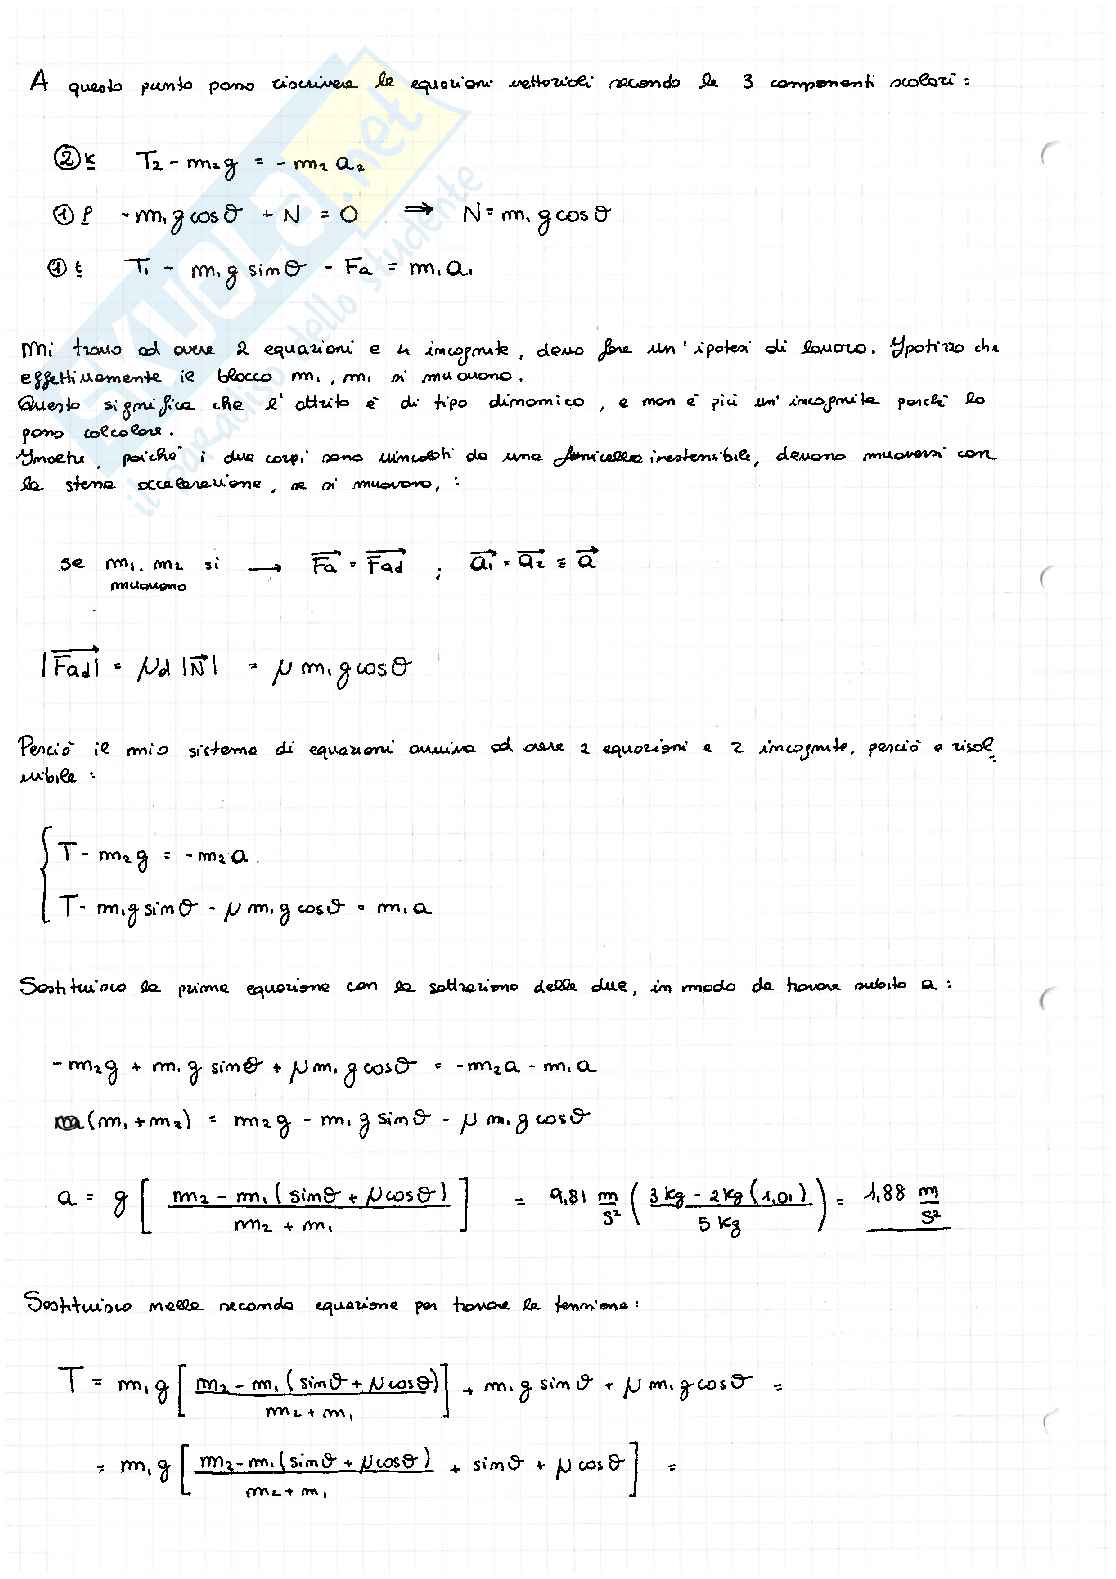 A questo punto posso riscrivere le equazioni vettoriali secondo le 3 componenti scalari:
② k T₂ - m₂g = - m₂ a₂
① ρ - m₁ g cos θ + N = 0 ⇒ N = m₁ g cos θ
① t T₁ - m₁ g sin θ - Fa = m₁ a₁
Mi trovo ad avere 2 equazioni e 4 incognite, devo fare un' ipotesi di lavoro. Ipotizzo che
effettivamente il blocco m₁, m₁ si muovono.
Questo significa che l' attrito è di tipo dinamico, e non è più un' incognita perché lo
posso calcolare.
Inoltre, poiché i due corpi sono vincolati da una funicella inestensibile, devono muoversi con
la stessa accelerazione, se si muovono, :
se m₁, m₂ si → Fa = Fad ; a₁ = a₂ ≡ a
muovono
|Fad| = μd |N| = μ m₁ g cos θ
Perciò il mio sistema di equazioni arriva ad avere 2 equazioni e 2 incognite, perciò è risol
vibile :
T - m₂ g = - m₂ a.
T - m₁ g sin θ - μ m₁ g cos θ = m₁ a
Sostituisco la prima equazione con la sottrazione delle due, in modo da trovare subito a :
- m₂ g + m₁ g sin θ + μ m₁ g cos θ = - m₂ a - m₁ a
a (m₁ + m₂) = m₂ g - m₁ g sin θ - μ m₁ g cos θ
a = g [ m₂ - m₁ ( sin θ + μ cos θ ) / m₂ + m₁ ] = 9,81 m/s² ( 3 kg - 2 kg ( 1,01 ) / 5 kg ) = 1,88 m/s²
Sostituisco nella seconda equazione per trovare la tensione :
T = m₁ g [ m₂ - m₁ ( sin θ + μ cos θ ) / m₂ + m₁ ] + m₁ g sin θ + μ m₁ g cos θ =
= m₁ g [ m₂ - m₁ ( sin θ + μ cos θ ) / m₂ + m₁ + sin θ + μ cos θ ] =